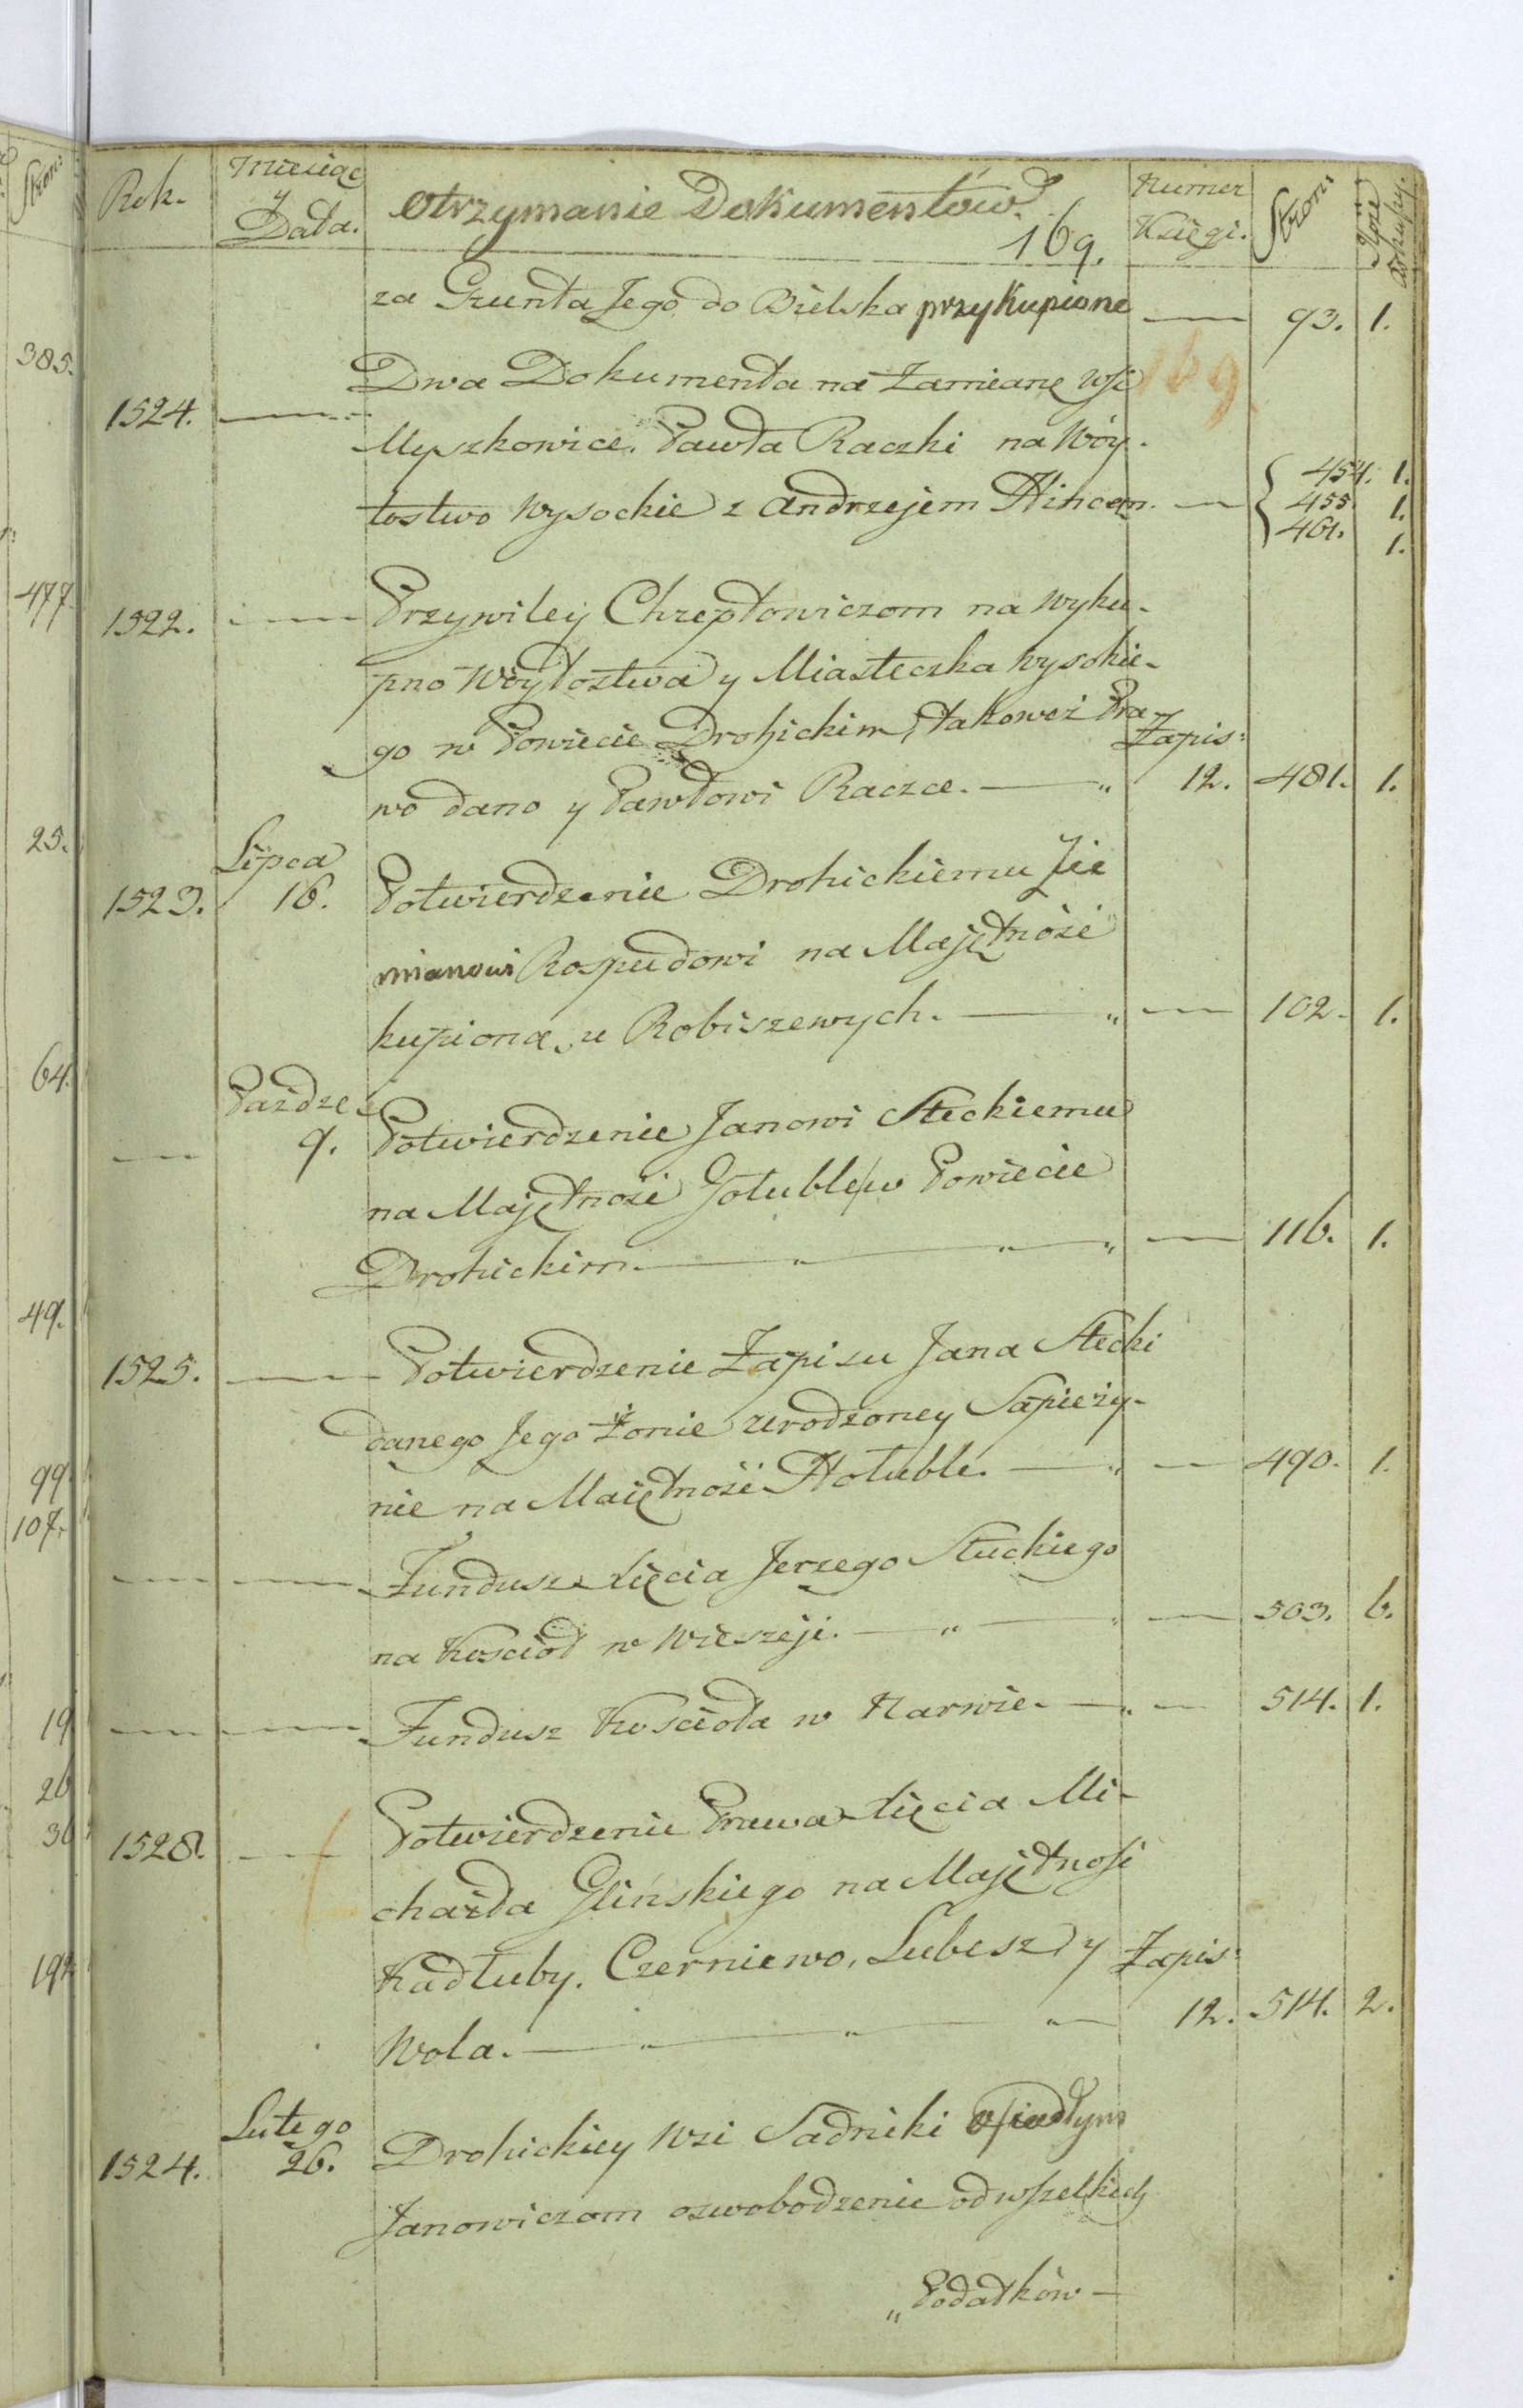 Stron:
385.
477.
25.
64.
49.
99.
107.
19
26
36
192
Rok.
Miesiąc
y
Data.
Otrzymanie Dokumentów.
169.
Numer
Księgi.
Stron:
za Grunta Jego do Bielska przykupione — 93. 1.
169
Dwa Dokumenta na Zamianę wsi
1524. —
Myszkowice. Pawła Raczki na Wóy-
tostwo Wysockie z Andrzejem Hincem. — { 454. 1.
455. 1.
461. 1.
1522. — Przywiley Chreptowiczom na wyku-
pno Wóytostwa y Miasteczka Wysokie-
go w Powiecie Drohickim, takoweż Pra-
Zapis:
wo dano y Pawłowi Raczce. — " 12. 481. 1.
Lipca
1523. 16. Potwierdzenie Drohickiemu Zie
mianowi Rospudowi na Majętność
kupioną u Robiszewych. — " — 102. 1.
Paźdze:
— 9. Potwierdzenie Janowi Steckiemu
na Majętność Hołuble w Powiecie
Drohickim. — " — " — " — 116. 1.
1525. — Potwierdzenie Zapisu Jana Stecki
danego Jego Żonie urodzoney Sapieży-
nie na Maiętność Hołuble. — " — 490. 1.
— — Fundusz Xięcia Jerzego Słuckiego
na Kościoł w Wieszeji. — " — " — 503. 6.
— — Fundusz Kościoła w Narwie. — " — 514. 1.
1528. — Potwierdzenie Prawa Xięcia Mi-
chaiła Glińskiego na Majętność
Kadłuby. Czerniewo, Lubesz y Zapis:
Wola. — " — " — " — 12. 514. 2.
Lutego
1524. 26. Drohickiey Wsi Sadniki osiadłym
Janowiczom oswobodzenie od wszelkich
„Podatków —